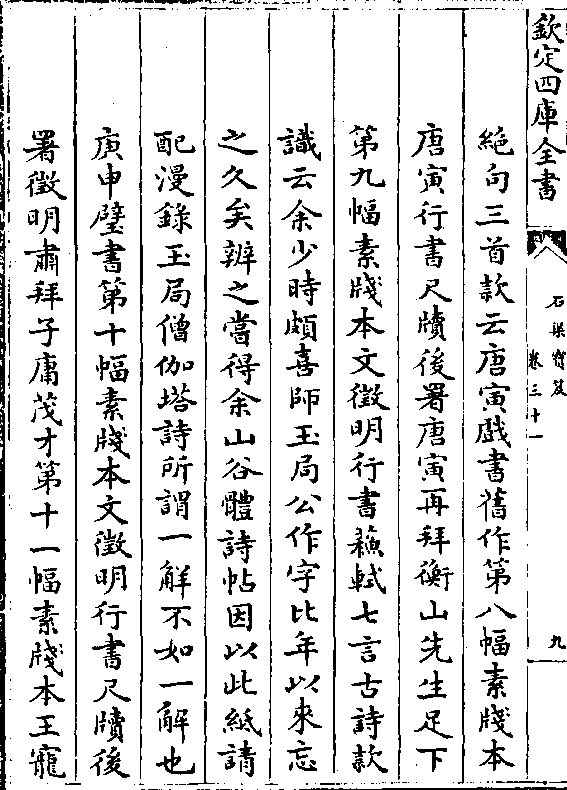 欽定四庫全書
石渠寶笈
卷三十一
九
絶句三首款云唐寅戲書舊作第八幅素牋本
唐寅行書尺牘後署唐寅再拜衡山先生足下
第九幅素牋本文徵明行書蘓軾七言古詩款
識云余少時頗喜師玉局公作字比年以來忘
之久矣辨之嘗得余山谷體詩帖因以此紙請
配漫錄玉局僧伽塔詩所謂一觧不如一解也
庚申璧書第十幅素牋本文徵明行書尺牘後
署徵明肅拜子庸茂才第十一幅素牋本王寵